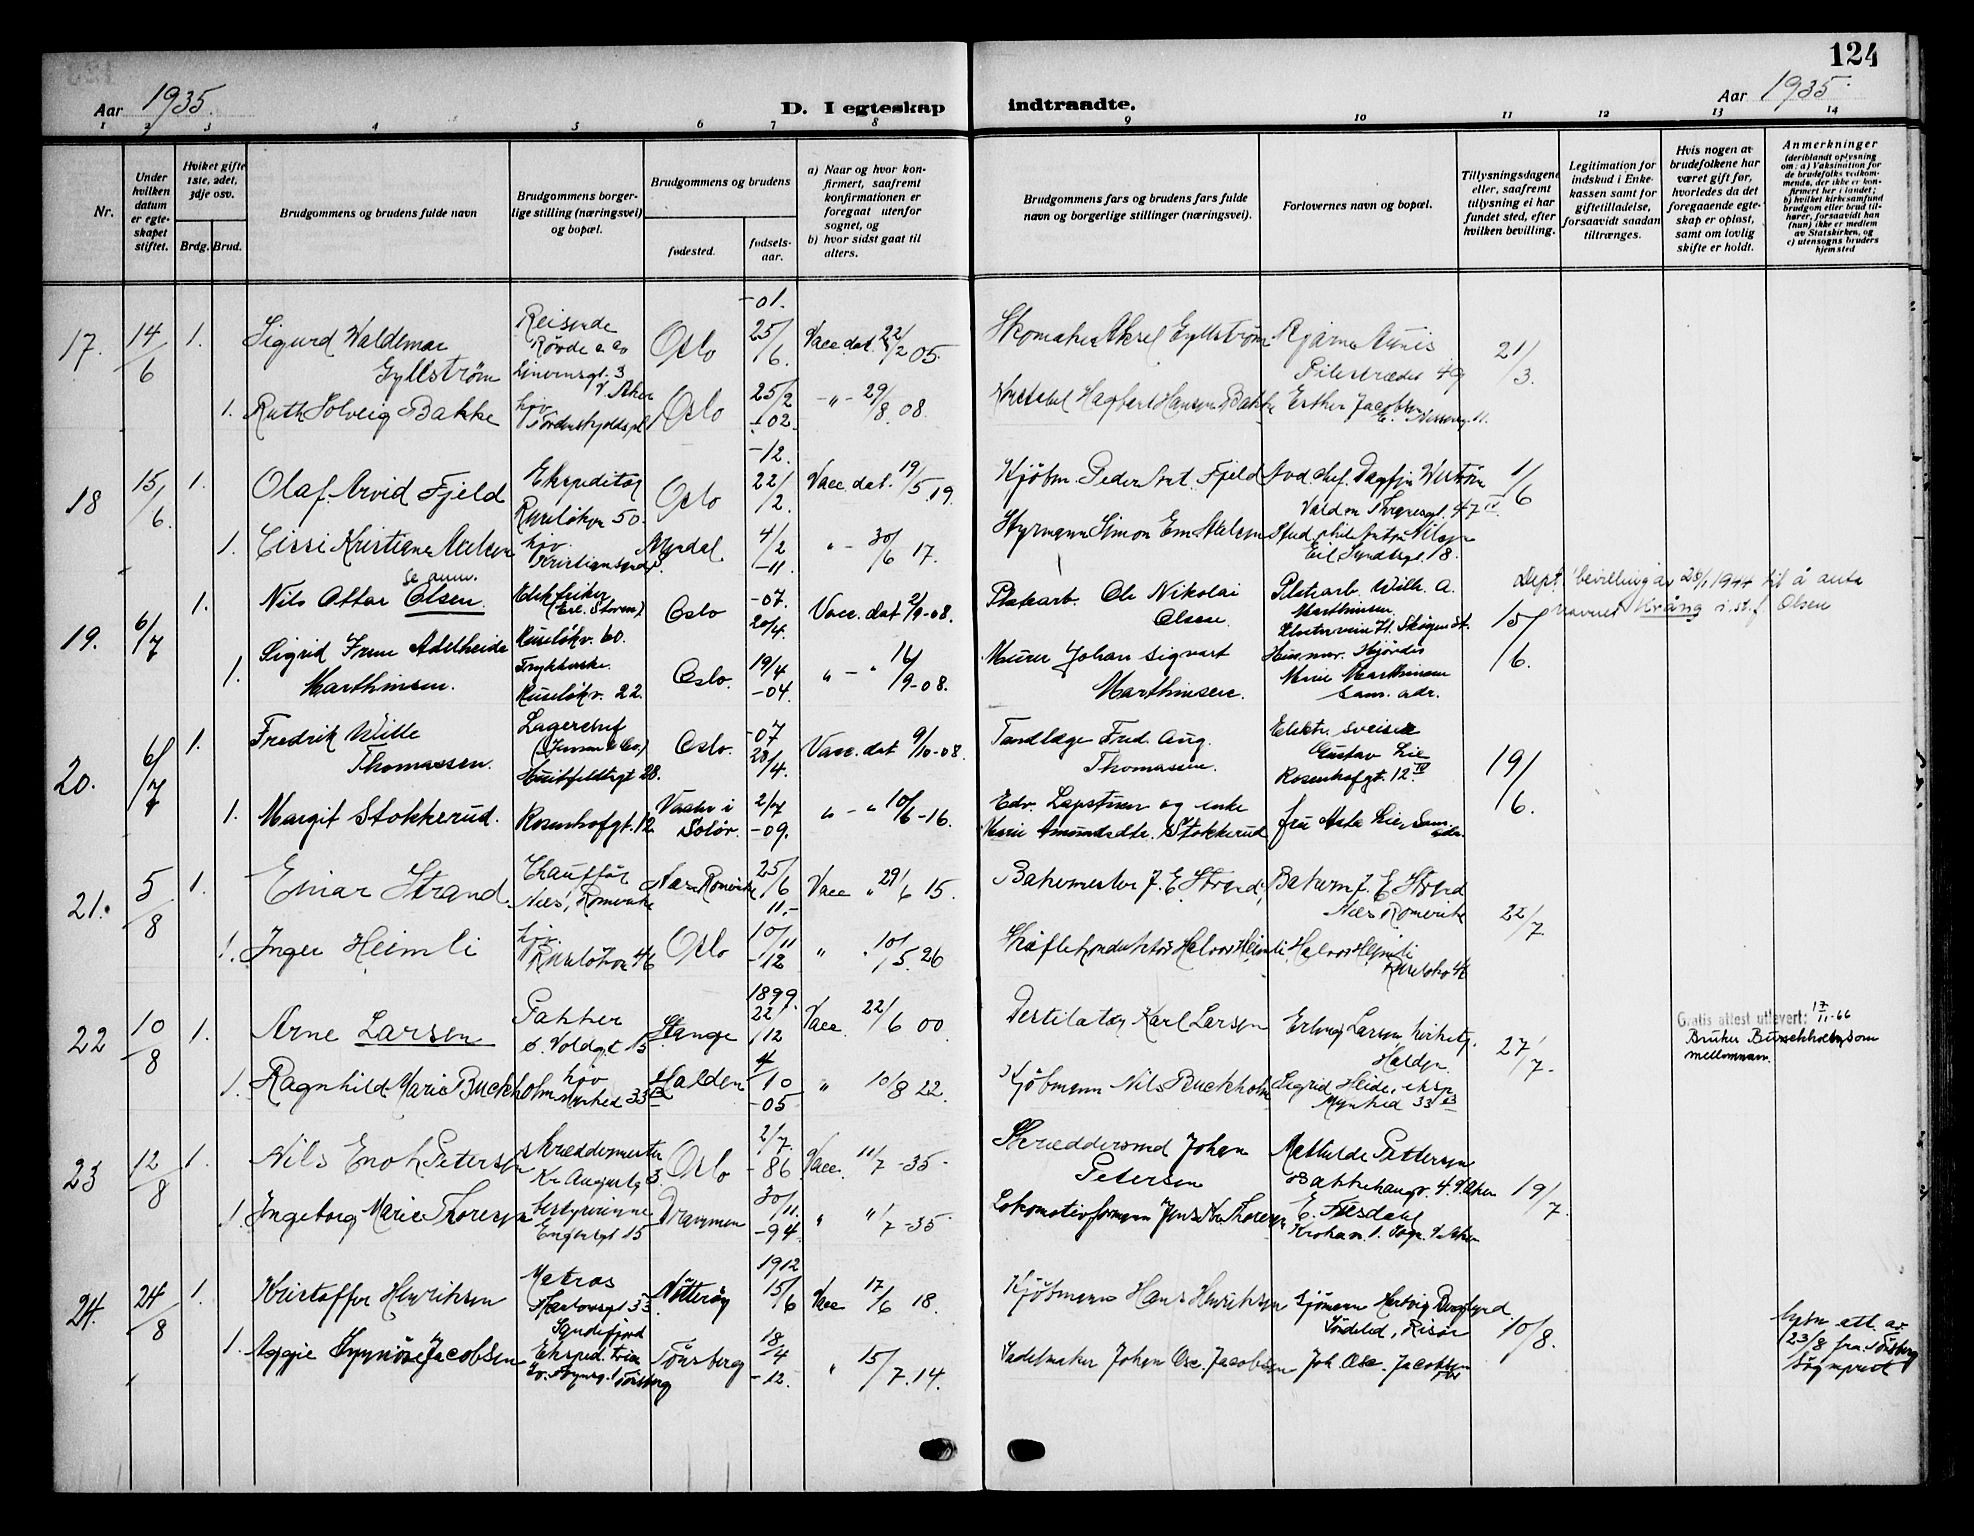 124
Aar 1935. D. I egteskap indtraadte. Aar 1935.
1 2 3 4 5 6 7 8 9 10 11 12 13 14
Nr.
Under hvilken datum er egteskapet stiftet.
Hvilket gifte 1ste, 2det, 3dje osv.
Brdg. Brud.
Brudgommens og brudens fulde navn
Brudgommens borgerlige stilling (næringsvei) og bopæl.
Brudgommens og brudens
fødested.
fødselsaar.
a) Naar og hvor konfirmert, saafremt konfirmationen er foregaat utenfor sognet, og
b) hvor sidst gaat til alters.
Brudgommens fars og brudens fars fulde navn og borgerlige stillinger (næringsvei).
Forlovernes navn og bopæl.
Tillysningsdagene eller, saafremt tillysning ei har fundet sted, efter hvilken bevilling.
Legitimation for indskud i Enkekassen samt for giftetilladelse, forsaavidt saadan tiltrænges.
Hvis nogen av brudefolkene har været gift før, hvorledes da det foregaaende egteskap er opløst, samt om lovlig skifte er holdt.
Anmerkninger
(deriblandt oplysning om: a) Vaksination for de brudefolks vedkommende, der ikke er konfirmert her i landet; b) hvilket kirkesamfund brudgom eller brud tilhører, forsaavidt han (hun) ikke er medlem av Statskirken, og c) utensogns bruders hjemsted
17. 14/6 1. Sigurd Waldemar Gyllstrøm Reisende Oslo -01. 25/6. Vacc. dat. 22/2 05. Skomaker Aksel Gyllstrøm Pilestrædet 49 21/3.
1. Ruth Solveig Bakke hjv. Tordenskjoldspl. Oslo 25/2 -02. -"- 29/8. 08. Hagbart Hansen Bakke Esther Jacobsen 11.
18 15/6. 1. Olaf Arvid Fjeld Ekspeditør Ruseløkv. 50. Oslo -12. 22/2. Vacc. dat. 19/5. 19. Kjøbm. Peder Fjeld 47 IV 1/6
1. Cissi Kristiane hjv. Kristiansund 4/2 -11. " - 30/6 17. Styrmann Simon Stud. phil. Eil. Sundtsgt. 18.
19. 6/7 1. Nils Ottar Olsen Se anm. Elektriker Ruseløkv. 60. Oslo -07. 20/4. Vacc. dat 2/9-08. Platearb. Ole Nikolai Olsen. Platearb. Wilh. A. Marthinsen 15/6.
Dept. bevilling av 28/1 1944 til å anta navnet Krång i st. f. Olsen
1. Sigrid Irene Adelheide Marthinsen. Ruseløkv. 22. Oslo. 19/4 -04. " - " 16/9-08. Murer Johan Sigvart Marthinsen. Husmor. Hjørdis Marie Marthinsen Sam. adr.
20. 6/7 1. Fredrik Wille Thomassen. Lagerchef (Jensen & Co.) Huitfeldtsgt 28. Oslo. -07 28/4. Vacc. dat 9/10-08. Tandlæge Fred. Aug. Thomassen. Elektr. sveiser Gustav Lie Rosenhofgt. 12 IV 19/6.
1. Margit Stokkerud. Rosenhofgt. 12 Vaaler i Solør. 2/7 -09. " - " 10/6-16. Edv. og enke Marie Amundsdtr. Stokkerud fru Asta Lie, Sam. adr.
21. 5/8 1. Einar Strand. Chauffør Nes, Romerike Nes Romerike 25/6 11.- Vacc " 29/6 15. Bakermester J. E. Strand, Bakerm J. E. Strand Nes Romerike 22/7.
1. Inger Heimli hjv. Ruseløkv. 46 Oslo 10/11 -12 " " 10/5. 26 Halvor Heimli, Halvor Heimli Ruseløkv 46
22 10/8 1. Arne Larsen Pakker ö. Voldgt 15 Stange 1899. 22/12 Vacc. 22/6 00. Destilatør Karl Larsen Erling Larsen Halden 27/7.
Gratis attest utlevert: 17/11-66
Bruker Buckholm som mellomnavn.
1. Ragnhild Marie Buckholm hjv. Halden 4/10 -05 " 10/8 22. Kjøbmann Nils Buckholm Sigrid Heide, eksp
23 12/8 1. Nils Enok Petersen Skreddermester Kr. Augustg 3. Oslo 2/7. -86 Vacc. 11/7 -35. Skreddersvend Johan Petersen Mathilde Pettersen Bakkehaugv. 4. V. Aker 19/7.
1. Ingeborg Marie Thoresen bestyrerinne Drammen 30/11. -94. " "/7 -35. Lokomotivformann Jens Thoresen E. V. Aker
24. 24/8 1. Kristoffer Henriksen Matros Nøtterøy 1912 15/6 Vacc 17/6 18. Kjøbmann Hans Henriksen Sjømann Søndeled, Risør 10/8.
1. Aggie Synnøve Jacobsen Sandefjord Eksped. trice Tønsberg Tønsberg 18/4 -12. " 15/7. 14. Sadelmaker Johan Osc. Jacobsen Joh. Osc. Jacobsen
att. av 23/8 fra Tønsberg Sogneprest